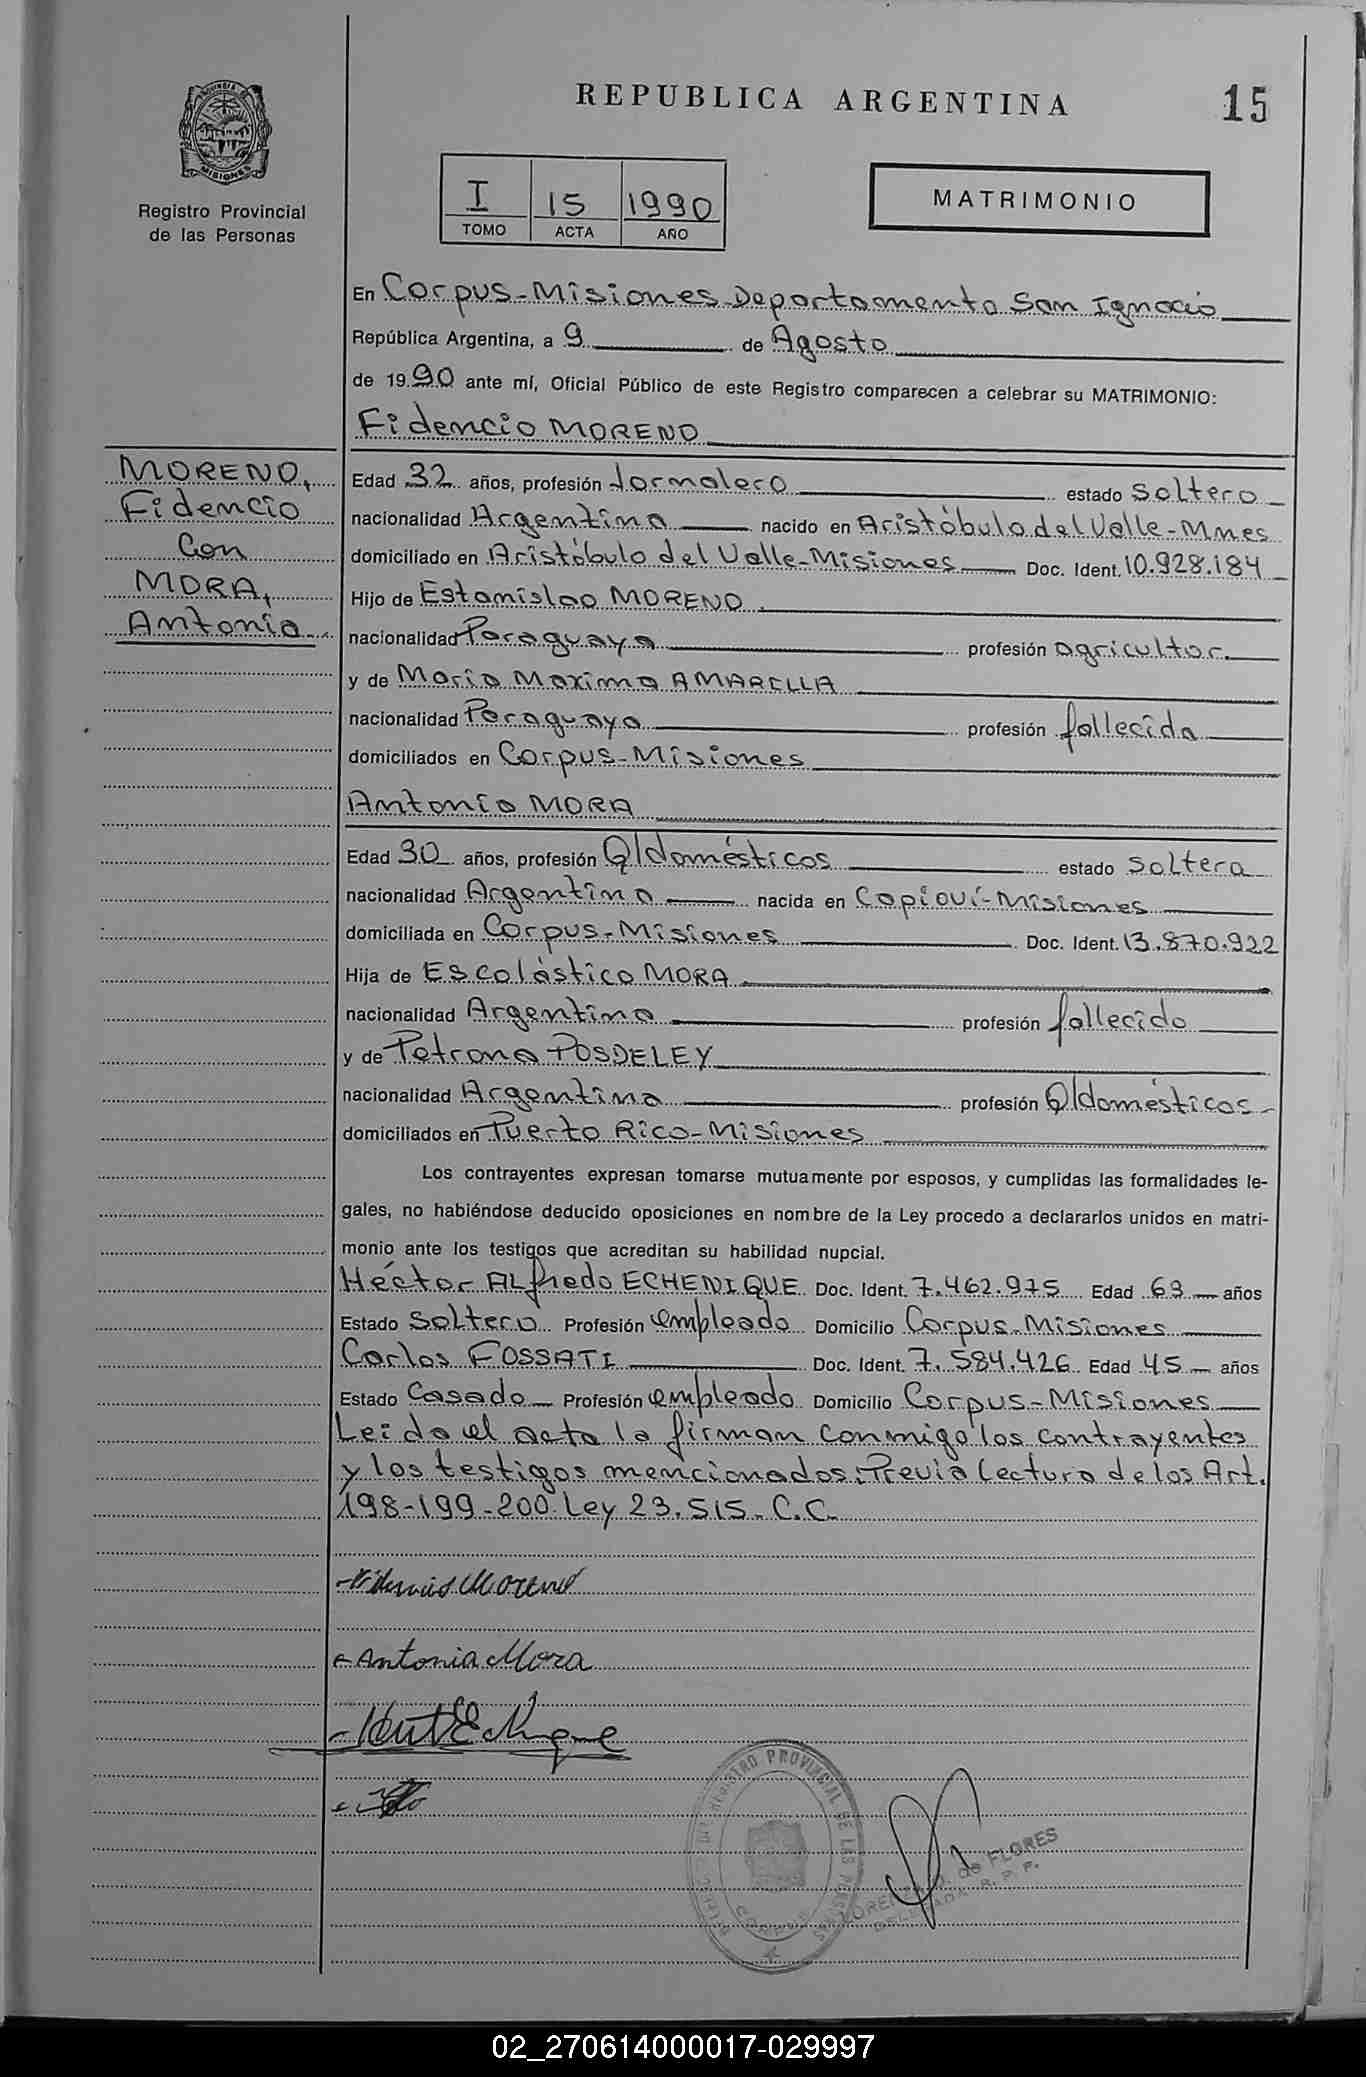 REPUBLICA ARGENTINA
15
MISIONES
Registro Provincial
de las Personas
I 15 1990
TOMO ACTA AÑO
MATRIMONIO
En Corpus-Misiones Departamento San Ignacio
República Argentina, a 9 de Agosto
de 1990 ante mí, Oficial Público de este Registro comparecen a celebrar su MATRIMONIO:
Fidencio MORENO
MORENO,
Fidencio
Con
MORA,
Antonia
Edad 32 años, profesión Jornalero estado Soltero
nacionalidad Argentina nacido en Aristóbulo del Valle-Mnes
domiciliado en Aristóbulo del Valle-Misiones Doc. Ident. 10.928.184
Hijo de Estanislao MORENO
nacionalidad Paraguaya profesión agricultor
y de Maria Maxima AMARILLA
nacionalidad Paraguaya profesión fallecida
domiciliados en Corpus-Misiones
Antonia MORA
Edad 30 años, profesión Q/domésticos estado Soltera
nacionalidad Argentina nacida en Capioví-Misiones
domiciliada en Corpus-Misiones Doc. Ident. 13.870.922
Hija de Escolástico MORA
nacionalidad Argentina profesión fallecido
y de Petrona POSDELEY
nacionalidad Argentina profesión Q/domésticos
domiciliados en Puerto Rico-Misiones
Los contrayentes expresan tomarse mutuamente por esposos, y cumplidas las formalidades le-
gales, no habiéndose deducido oposiciones en nombre de la Ley procedo a declararlos unidos en matri-
monio ante los testigos que acreditan su habilidad nupcial.
Héctor Alfredo ECHENIQUE Doc. Ident. 7.462.975 Edad 63 años
Estado Soltero Profesión empleado Domicilio Corpus-Misiones
Carlos FOSSATI Doc. Ident. 7.584.426 Edad 45 años
Estado Casado Profesión empleado Domicilio Corpus-Misiones
Leida el acta la firman conmigo los contrayentes
y los testigos mencionados. Previa lectura de los Art.
198-199-200 Ley 23.515-C.C.
Fidencio Moreno
Antonia Mora
REGISTRO PROVINCIAL DE LAS PERSONAS
CORPUS
de FLORES
DELEGADA R. P. P.
02_270614000017-029997